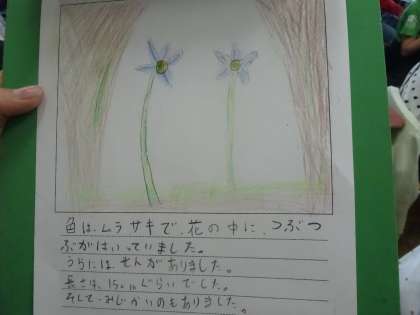 色は、ムラサキで、花の中に、つぶつ
ぶがはいっていました。
うらにはせんがありました。
長さは、15cmぐらいでした。
そして、みじかいのもありました。